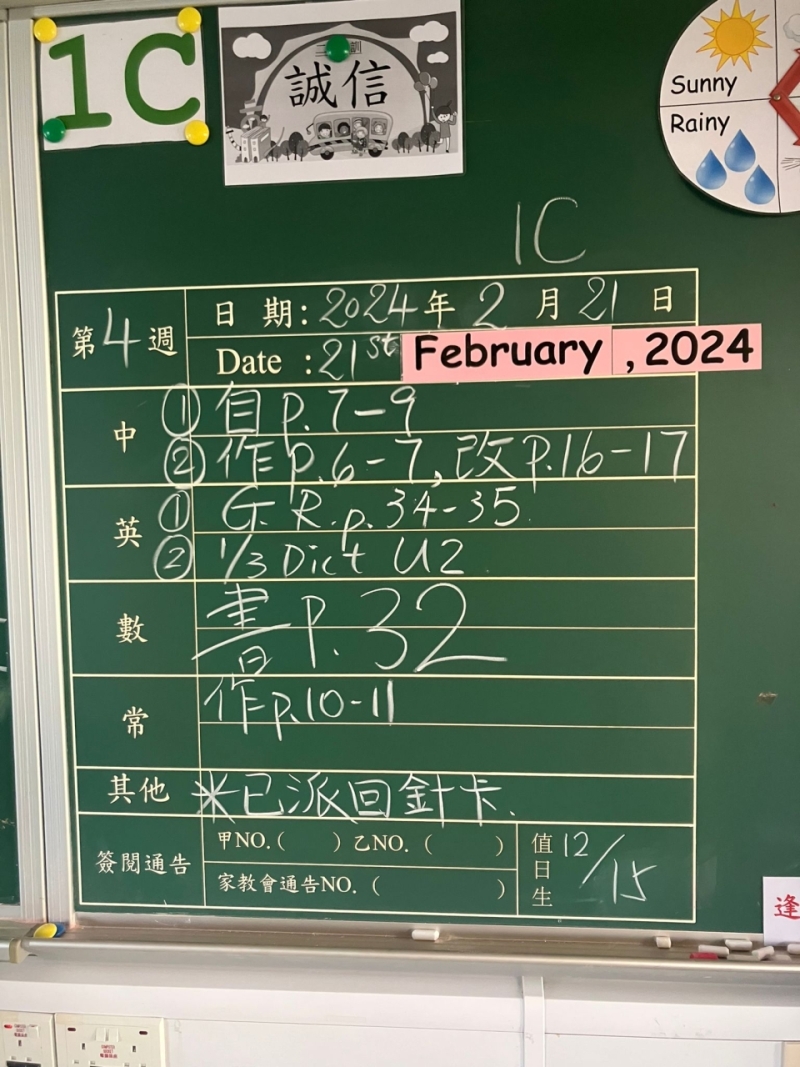 1C
誠信
Sunny
Rainy
1C
第4週
日 期: 2024 年 2 月 21 日
Date : 21st February , 2024
中
① 自 p. 7-9
② 作 p. 6-7, 改 p. 16-17
英
① G. R. p. 34-35
② 1/3 Dict U2
數
書 p. 32
常
作 p. 10-11
其他
*已派回針卡.
簽閱通告
甲NO. ( ) 乙NO. ( )
家教會通告NO. ( )
值日生
12/15
逢